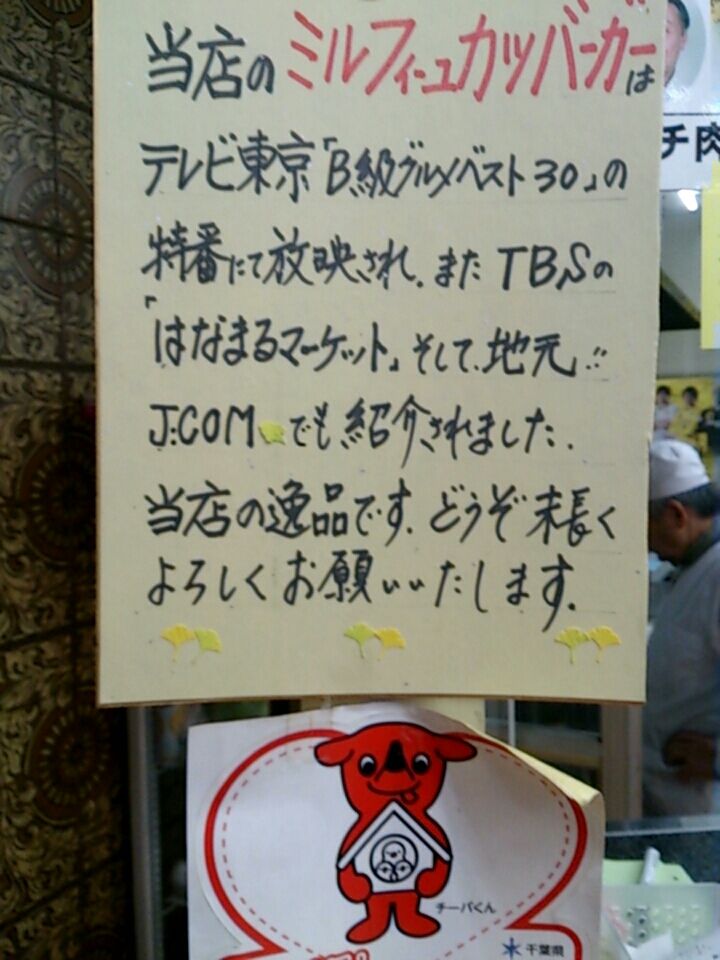 当店のミルフィーユカツバーガーは
テレビ東京「B級グルメベスト30」の
特番にて放映され、またTBSの
「はなまるマーケット」そして、地元
J:COMでも紹介されました。
当店の逸品です。どうぞ末長く
よろしくお願いいたします。
チ肉
チーバくん
千葉県